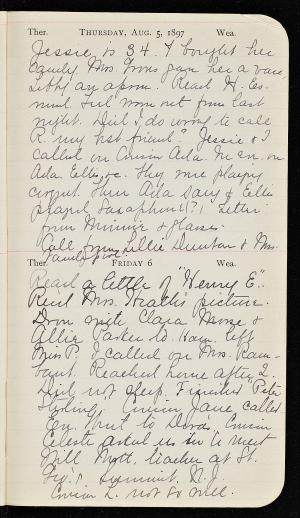 Ther. THURSDAY, AUG. 5, 1897 Wea.
Jessie is 34. I bought her
candy. Mrs. gave her a vase,
Libby an apron. Read H. Es-
mond. Feel worn out from last
night. Did I do wrong to call
R. my best friend? Jessie & I
called on Cousin Ada. In ev. on
Ada Ellis, &c. They were playing
croquet. Then Ada sang & Ellis
played Saxaphone (?) Letter
from Minnie &
Call from Lillie Dunton & Mrs.
Ther. FRIDAY 6 Wea.
Read a little of "Henry E."
Rec'd Mrs. picture.
Drove with Clara Morse &
Allie Parker to Ham. Left
Miss P. & called on Mrs. Ram-
Reached home after 2.
Did not sleep. Finished Peter
Stirling. Cousin Jane called.
Ev. Went to Dora's. Cousin
Celeste asked us in to meet
Will Mott, teacher at St.
Geo.'s Summit, N.J.
Cousin L. not so well.